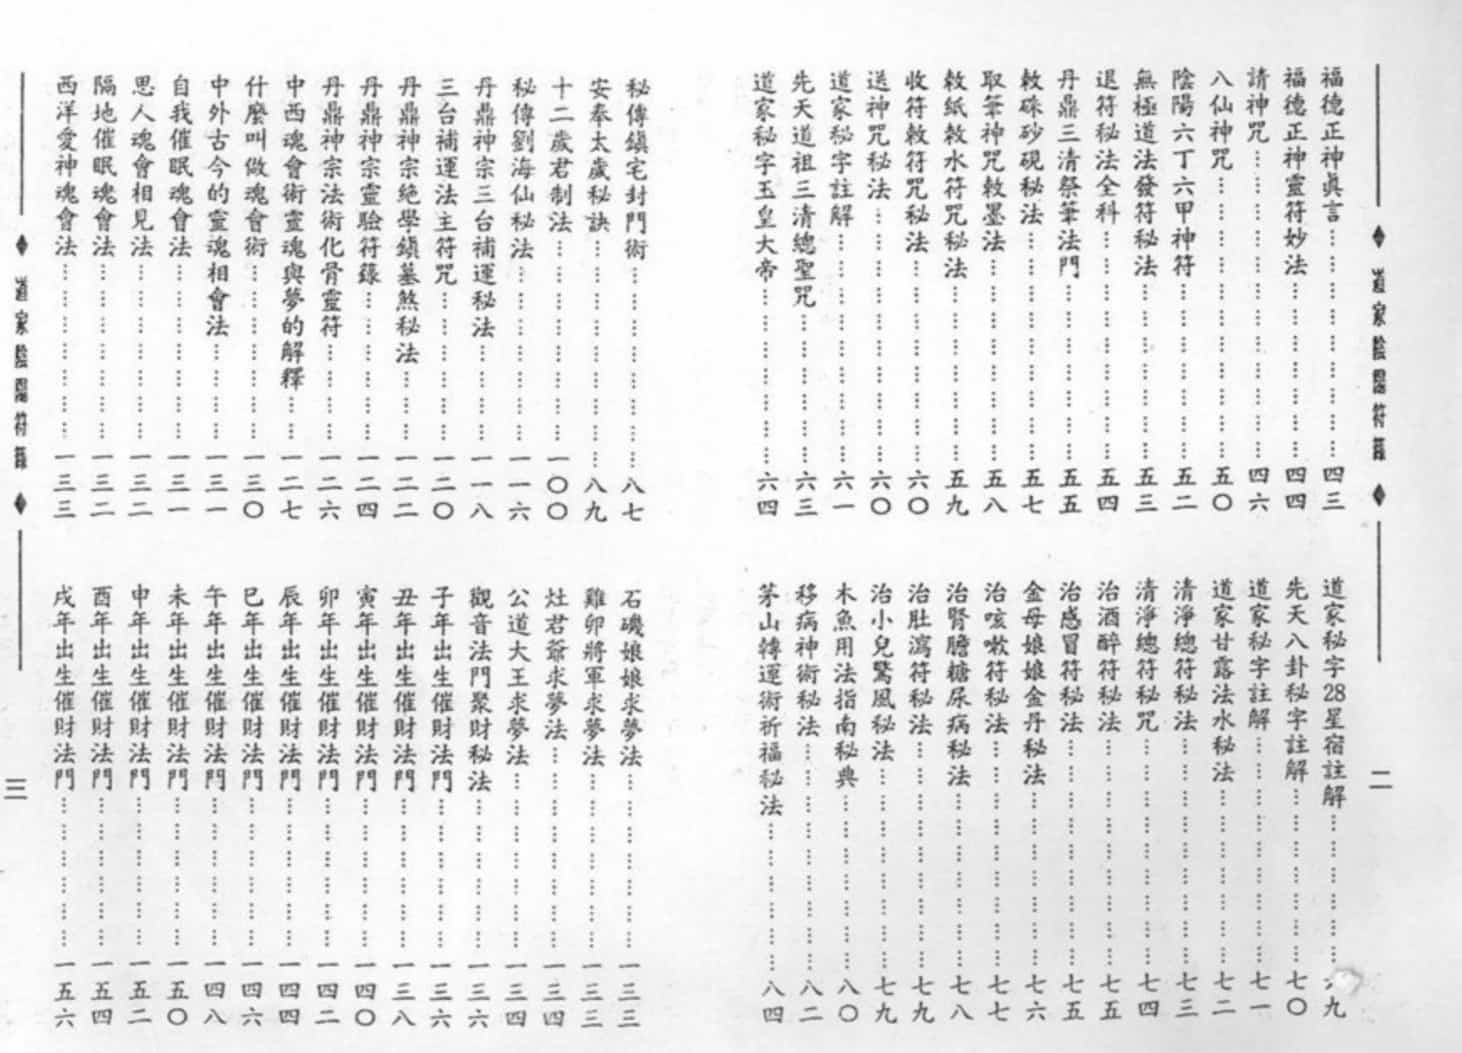 道家陰陽符籙
二
福德正神眞言……四三
福德正神靈符妙法……四四
請神咒……四六
八仙神咒……五〇
陰陽六丁六甲神符……五二
無極道法發符秘法……五三
退符秘法全科……五四
丹鼎三清祭筆法門……五五
敕硃砂硯秘法……五七
取筆神咒敕墨法……五八
敕紙敕水符咒秘法……五九
收符敕符咒秘法……六〇
送神咒秘法……六〇
道家秘字註解……六一
先天道祖三清總聖咒……六三
道家秘字玉皇大帝……六四
道家秘字28星宿註解……九
先天八卦秘字註解……七〇
道家秘字註解……七一
道家甘露法水秘法……七二
清淨總符秘法……七三
清淨總符秘咒……七四
治酒醉符秘法……七五
治感冒符秘法……七五
金母娘娘金丹秘法……七六
治咳嗽符秘法……七七
治腎膽糖尿病秘法……七八
治肚瀉符秘法……七九
治小兒驚風秘法……七九
木魚用法指南秘典……八〇
移病神術秘法……八二
茅山轉運術祈福秘法……八四
秘傳鎮宅封門術……八七
安奉太歲秘訣……八九
十二歲君制法……一〇〇
秘傳劉海仙秘法……一一六
丹鼎神宗三台補運秘法……一一八
三台補運法主符咒……一二〇
丹鼎神宗絕學鎮墓煞秘法……一二二
丹鼎神宗靈驗符籙……一二四
丹鼎神宗法術化骨靈符……一二六
中西魂會術靈魂與夢的解釋……一二七
什麼叫做魂會術……一三〇
中外古今的靈魂相會法……一三一
自我催眠魂會法……一三一
思人魂會相見法……一三二
隔地催眠魂會法……一三二
西洋愛神魂會法……一三三
石磯娘娘求夢法……一三三
雞卵將軍求夢法……一三三
灶君爺求夢法……一三四
公道大王求夢法……一三四
觀音法門聚財秘法……一三六
子年出生催財法門……一三六
丑年出生催財法門……一三八
寅年出生催財法門……一四〇
卯年出生催財法門……一四二
辰年出生催財法門……一四四
巳年出生催財法門……一四六
午年出生催財法門……一四八
未年出生催財法門……一五〇
申年出生催財法門……一五二
酉年出生催財法門……一五四
戌年出生催財法門……一五六
道家陰陽符籙
三